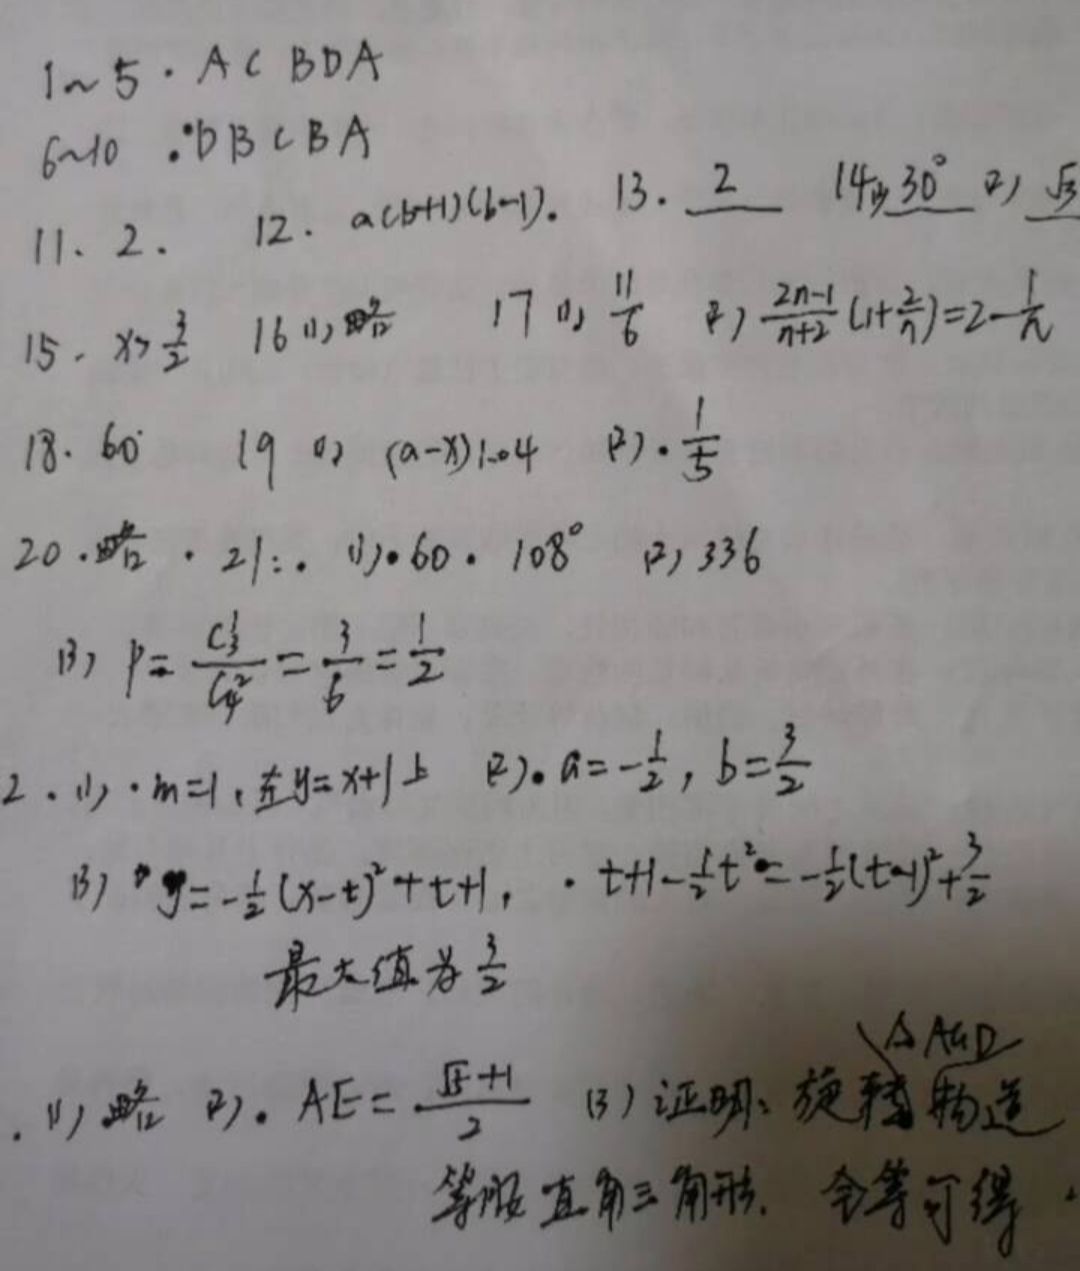 1~5. ACBDA
6~10. DBCBA
11. 2. 12. a(b+1)(b-1). 13. 2 14(1) 30° (2) √3
15. x>3/2 16(1) 略 17(1) 11/6 (2) (2n-1)/(n+2) (1+2/n)=2-1/n
18. 60 19(1) (a-x)1.04 (2). 1/5
20. 略. 21:. (1). 60. 108° (2) 336
(3) P=C₃¹/C₄²=3/6=1/2
2. (1). m=1, 在y=x+1上 (2). a=-1/2, b=3/2
(3) y=-1/2(x-t)²+t+1, . t+1-1/2t²=-1/2(t-1)²+3/2
最大值为3/2
△AGD
. (1) 略 (2). AE=(√5+1)/2 (3) 证明: 旋转 构造
等腰直角三角形. 全等可得.